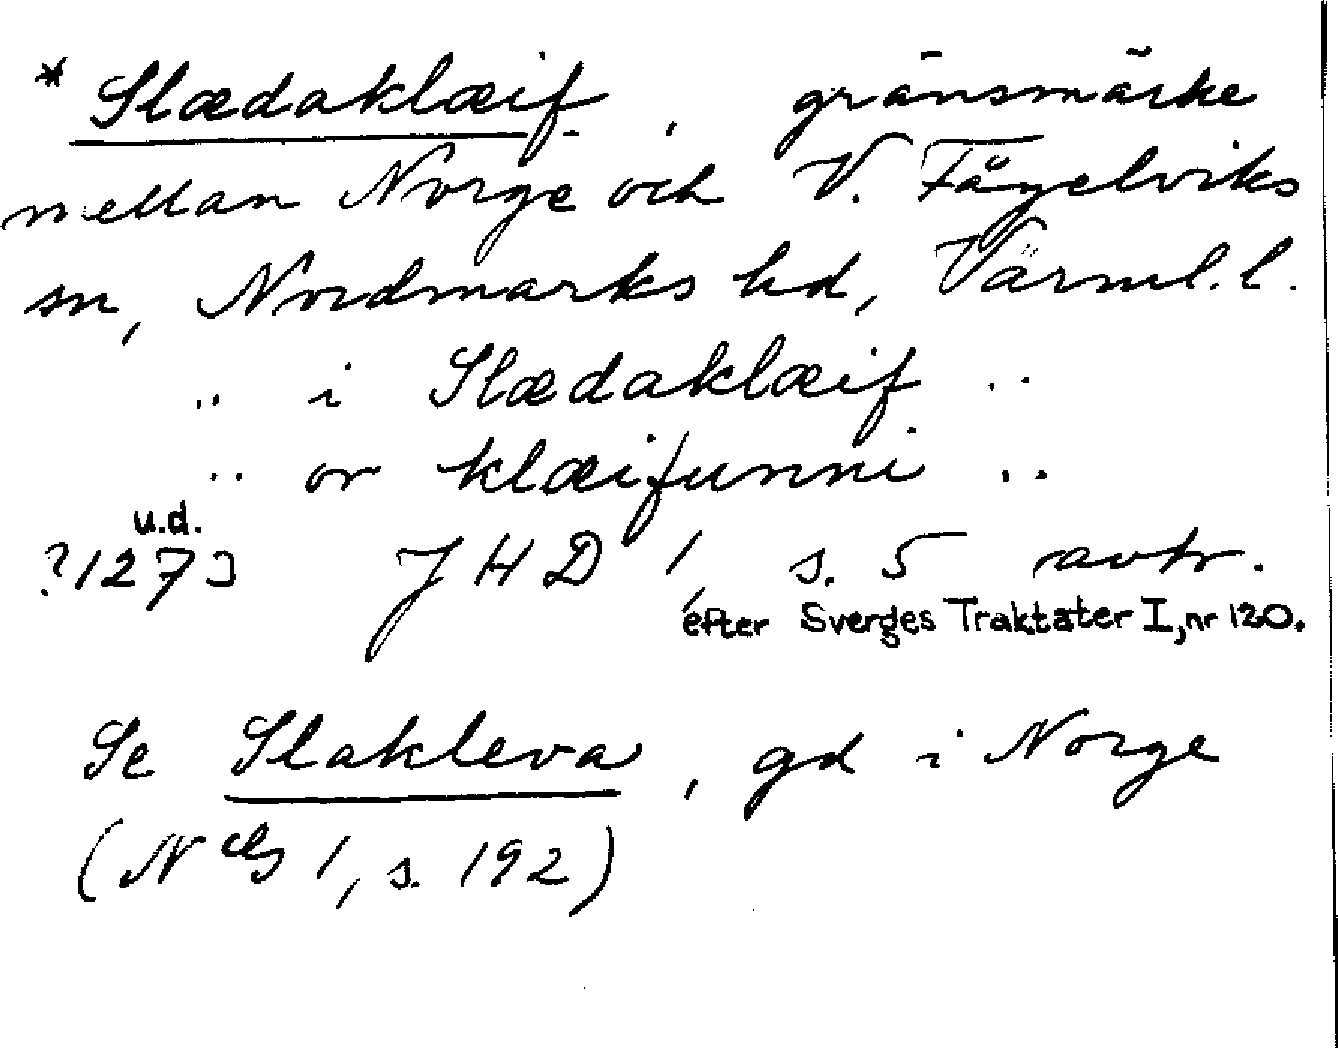 * Slædaklæif, gränsmärke
mellan Norge och V. Fågelviks
sn, Nordmarks hd, Värml. l.
.. i Slædaklæif ..
.. or klæifunni ..
u.d.
?1273 JHD 1, s. 5 avtr.
efter Sverges Traktater I, nr 120.
Se Slakleva, gd i Norge
(NG 1, s. 192)